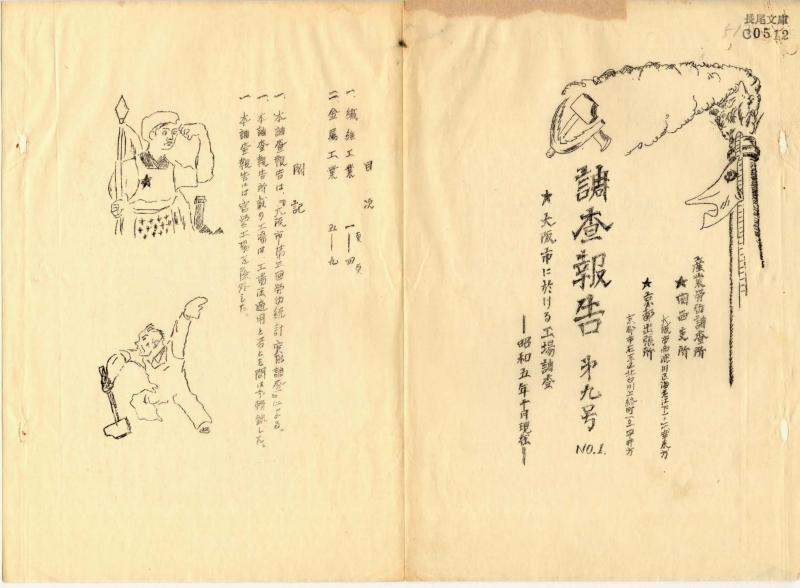 長尾文庫
C0512
産業労働調査所
★関西支所
★京都出張所
調査報告 第九号
NO.1.
★大阪市に於ける工場調査
――昭和五年十月現在――
目次
一、繊維工業 一―四頁
二、金属工業 五―九頁
附記
一、本調査報告は、『大阪市第三回労働統計実地調査』による。
一、本調査報告所載の工場は、工場法適用と否とを問はず
一、本調査報告には官営工場を除外した。